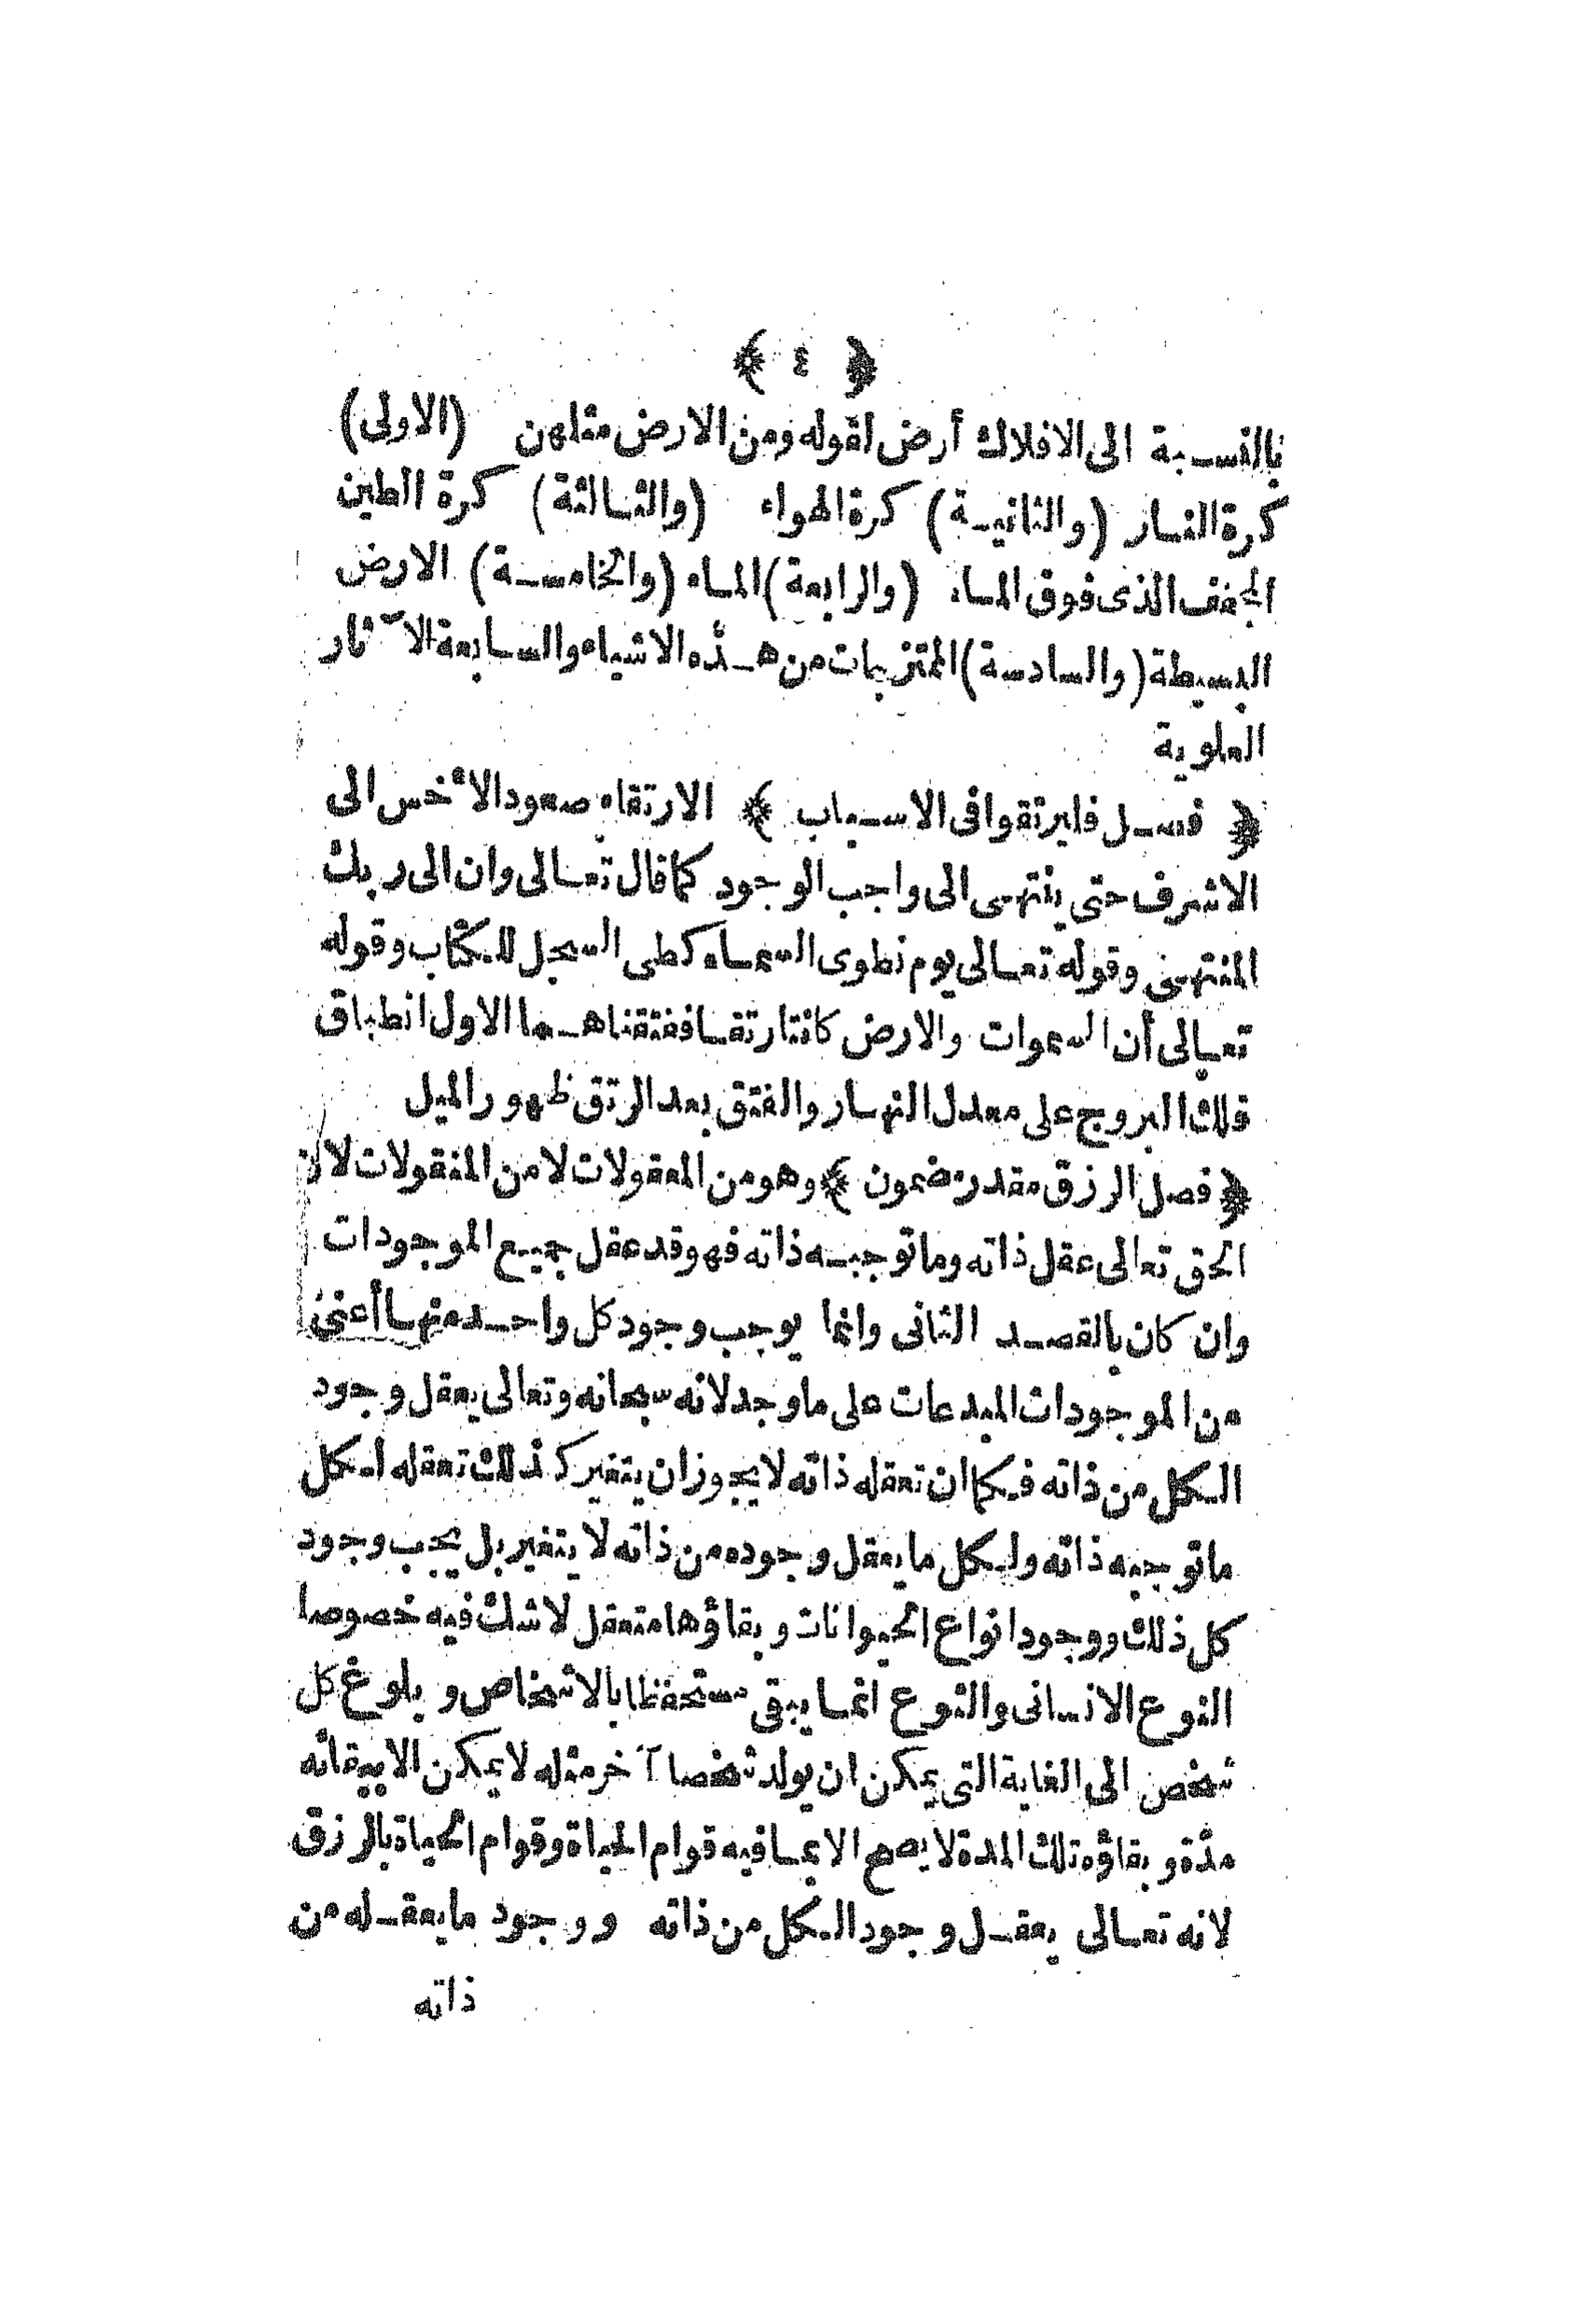 ﴿ ٤ ﴾
بالنسبة الى الافلاك أرض لقوله ومن الارض مثلهن (الاولى)
كرة النار (والثانية) كرة الهواء (والثالثة) كرة الطين
الجفف الذى فوق الماء (والرابعة) الماء (والخامسة) الارض
البسيطة (والسادسة) الممتزجات من هذه الاشياء والسابعة الآثار
العلوية
﴿ فصل فليرتقوا فى الاسباب ﴾ الارتقاء صعود الأخس الى
الاشرف حتى ينتهى الى واجب الوجود كما قال تعالى وان الى ربك
المنتهى وقوله تعالى يوم نطوى السماء كطى السجل للكتاب وقوله
تعالى أن السموات والارض كانتا رتقا ففتقناهما الاول انطباق
فلك البروج على معدل النهار والفتق بعد الرتق ظهور الميل
﴿ فصل الرزق مقدر مضمون ﴾ وهو من المعقولات لا من المنقولات لان
الحق تعالى عقل ذاته وما توجبه ذاته فهو قد عقل جميع الموجودات
وان كان بالقصد الثانى وانما يوجب وجود كل واحد منها أعنى
من الموجودات المبدعات على ما وجد لانه سبحانه وتعالى يعقل وجود
الكل من ذاته فكما ان تعقله ذاته لا يجوز ان يتغير كذلك تعقله لكل
ما توجبه ذاته ولكل ما يعقل وجوده من ذاته لا يتغير بل يجب وجود
كل ذلك ووجود انواع الحيوانات وبقاؤها متعقل لا شك فيه خصوصا
النوع الانسانى والنوع انما يبقى مستحفظا بالاشخاص وبلوغ كل
شخص الى الغاية التى يمكن ان يولد شخصا آخر مثله لا يمكن الا ببقائه
مدّة وبقاؤه تلك المدة لا يصح الا بما فيه قوام الحياة وقوام الحياة بالرزق
لانه تعالى يعقل وجود الكل من ذاته ووجود ما يعقله من
ذاته